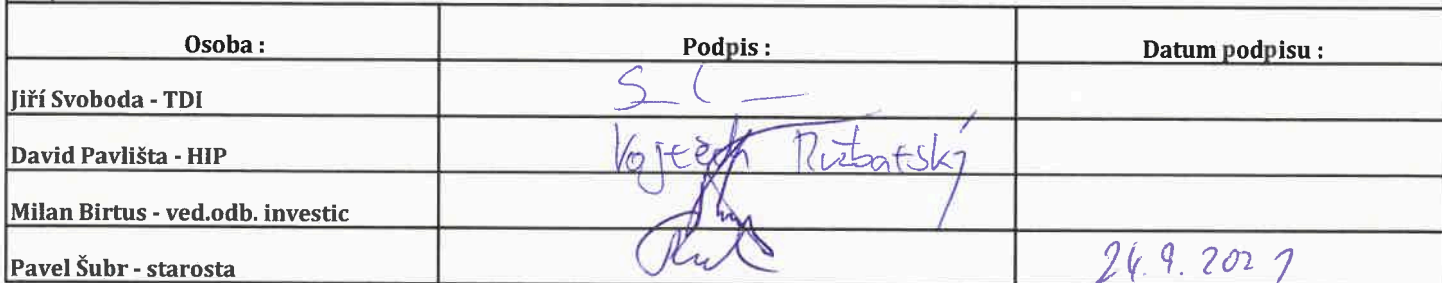 Osoba : Podpis : Datum podpisu :
Jiří Svoboda - TDI
David Pavlišta - HIP Vojtěch
Milan Birtus - ved.odb. investic
Pavel Šubr - starosta 24.9.2021